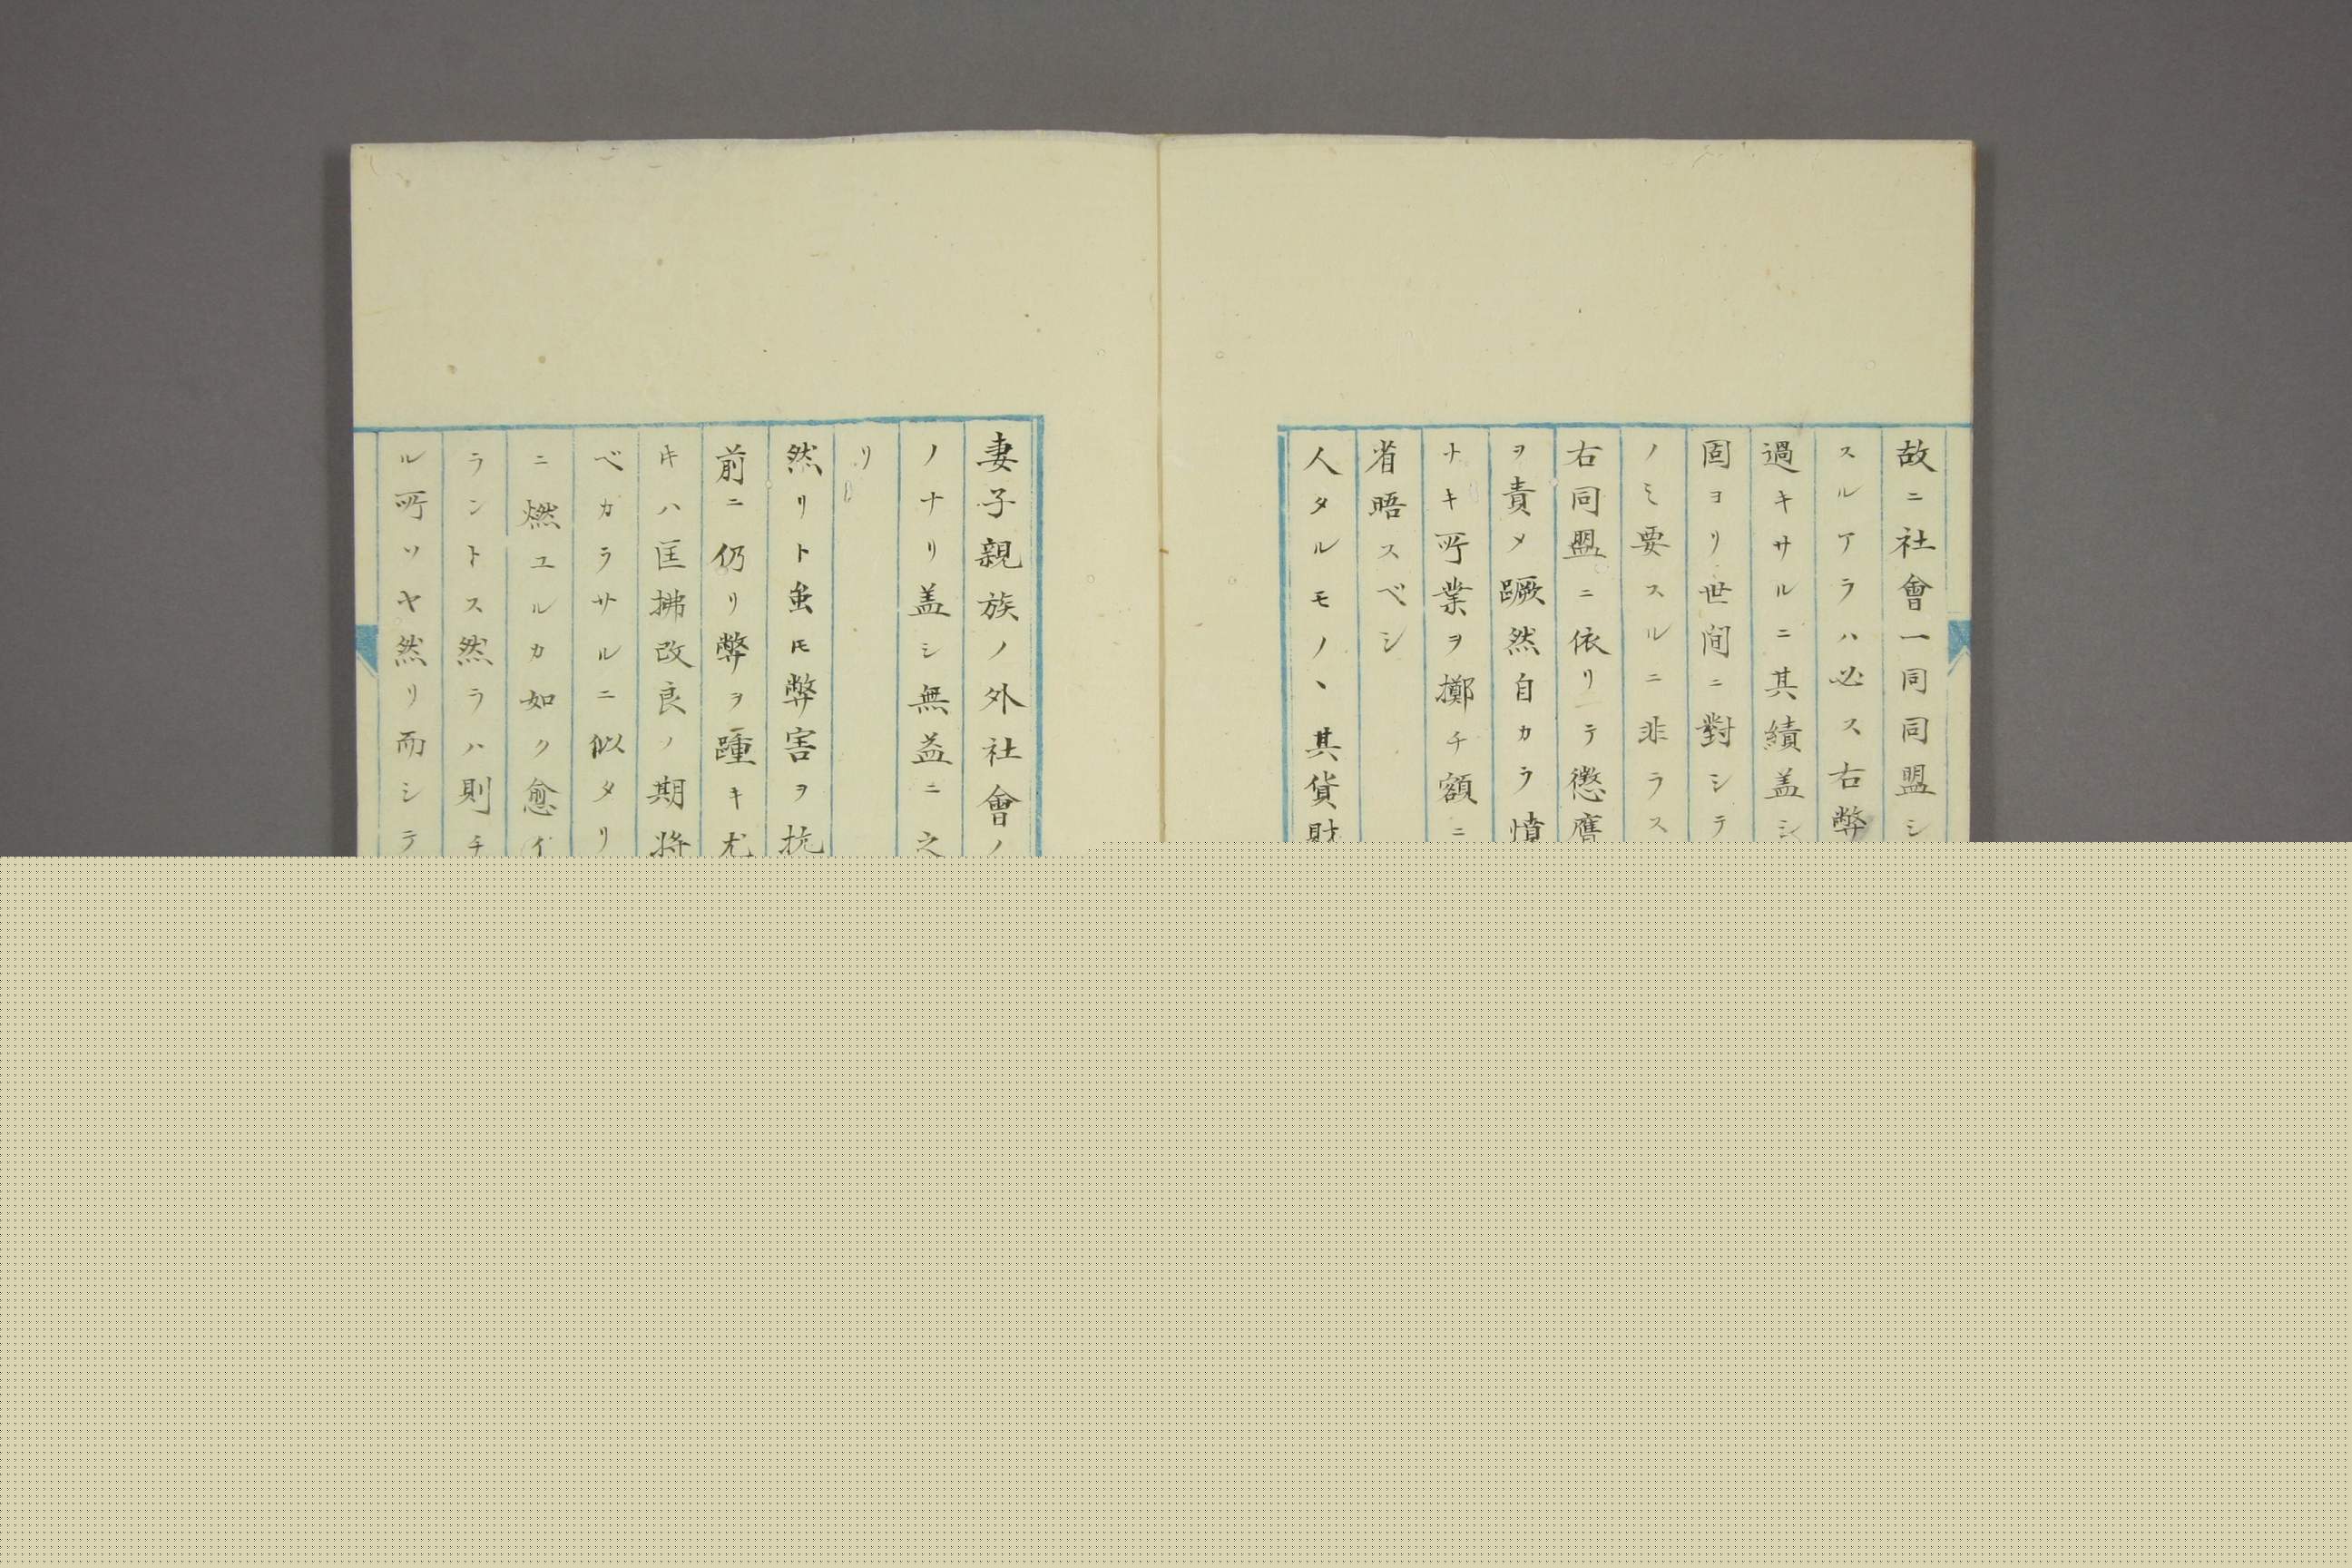 故ニ社會一同同盟シ
スルアラハ必ス右弊
過キサルニ其績盖シ
固ヨリ世间ニ對シテ
ノミ要スルニ非ラス
右同盟ニ依リテ懲
ヲ責メ蹶然自カラ憤
ナキ所業ヲ擲チ額ニ
省晤スベシ
人タルモノハ其貨財
妻子親族ノ外社會ノ
ノナリ盖シ無益ニ之
リ
然リト虽𪜈弊害ヲ抗
前ニ仍リ弊ヲ踵キ尤
キハ匡拂改良ノ期将
ベカラサルニ似タリ
ニ燃ユルカ如ク愈イ
ラントス然ラハ則チ
ル所ソヤ然リ而シテ